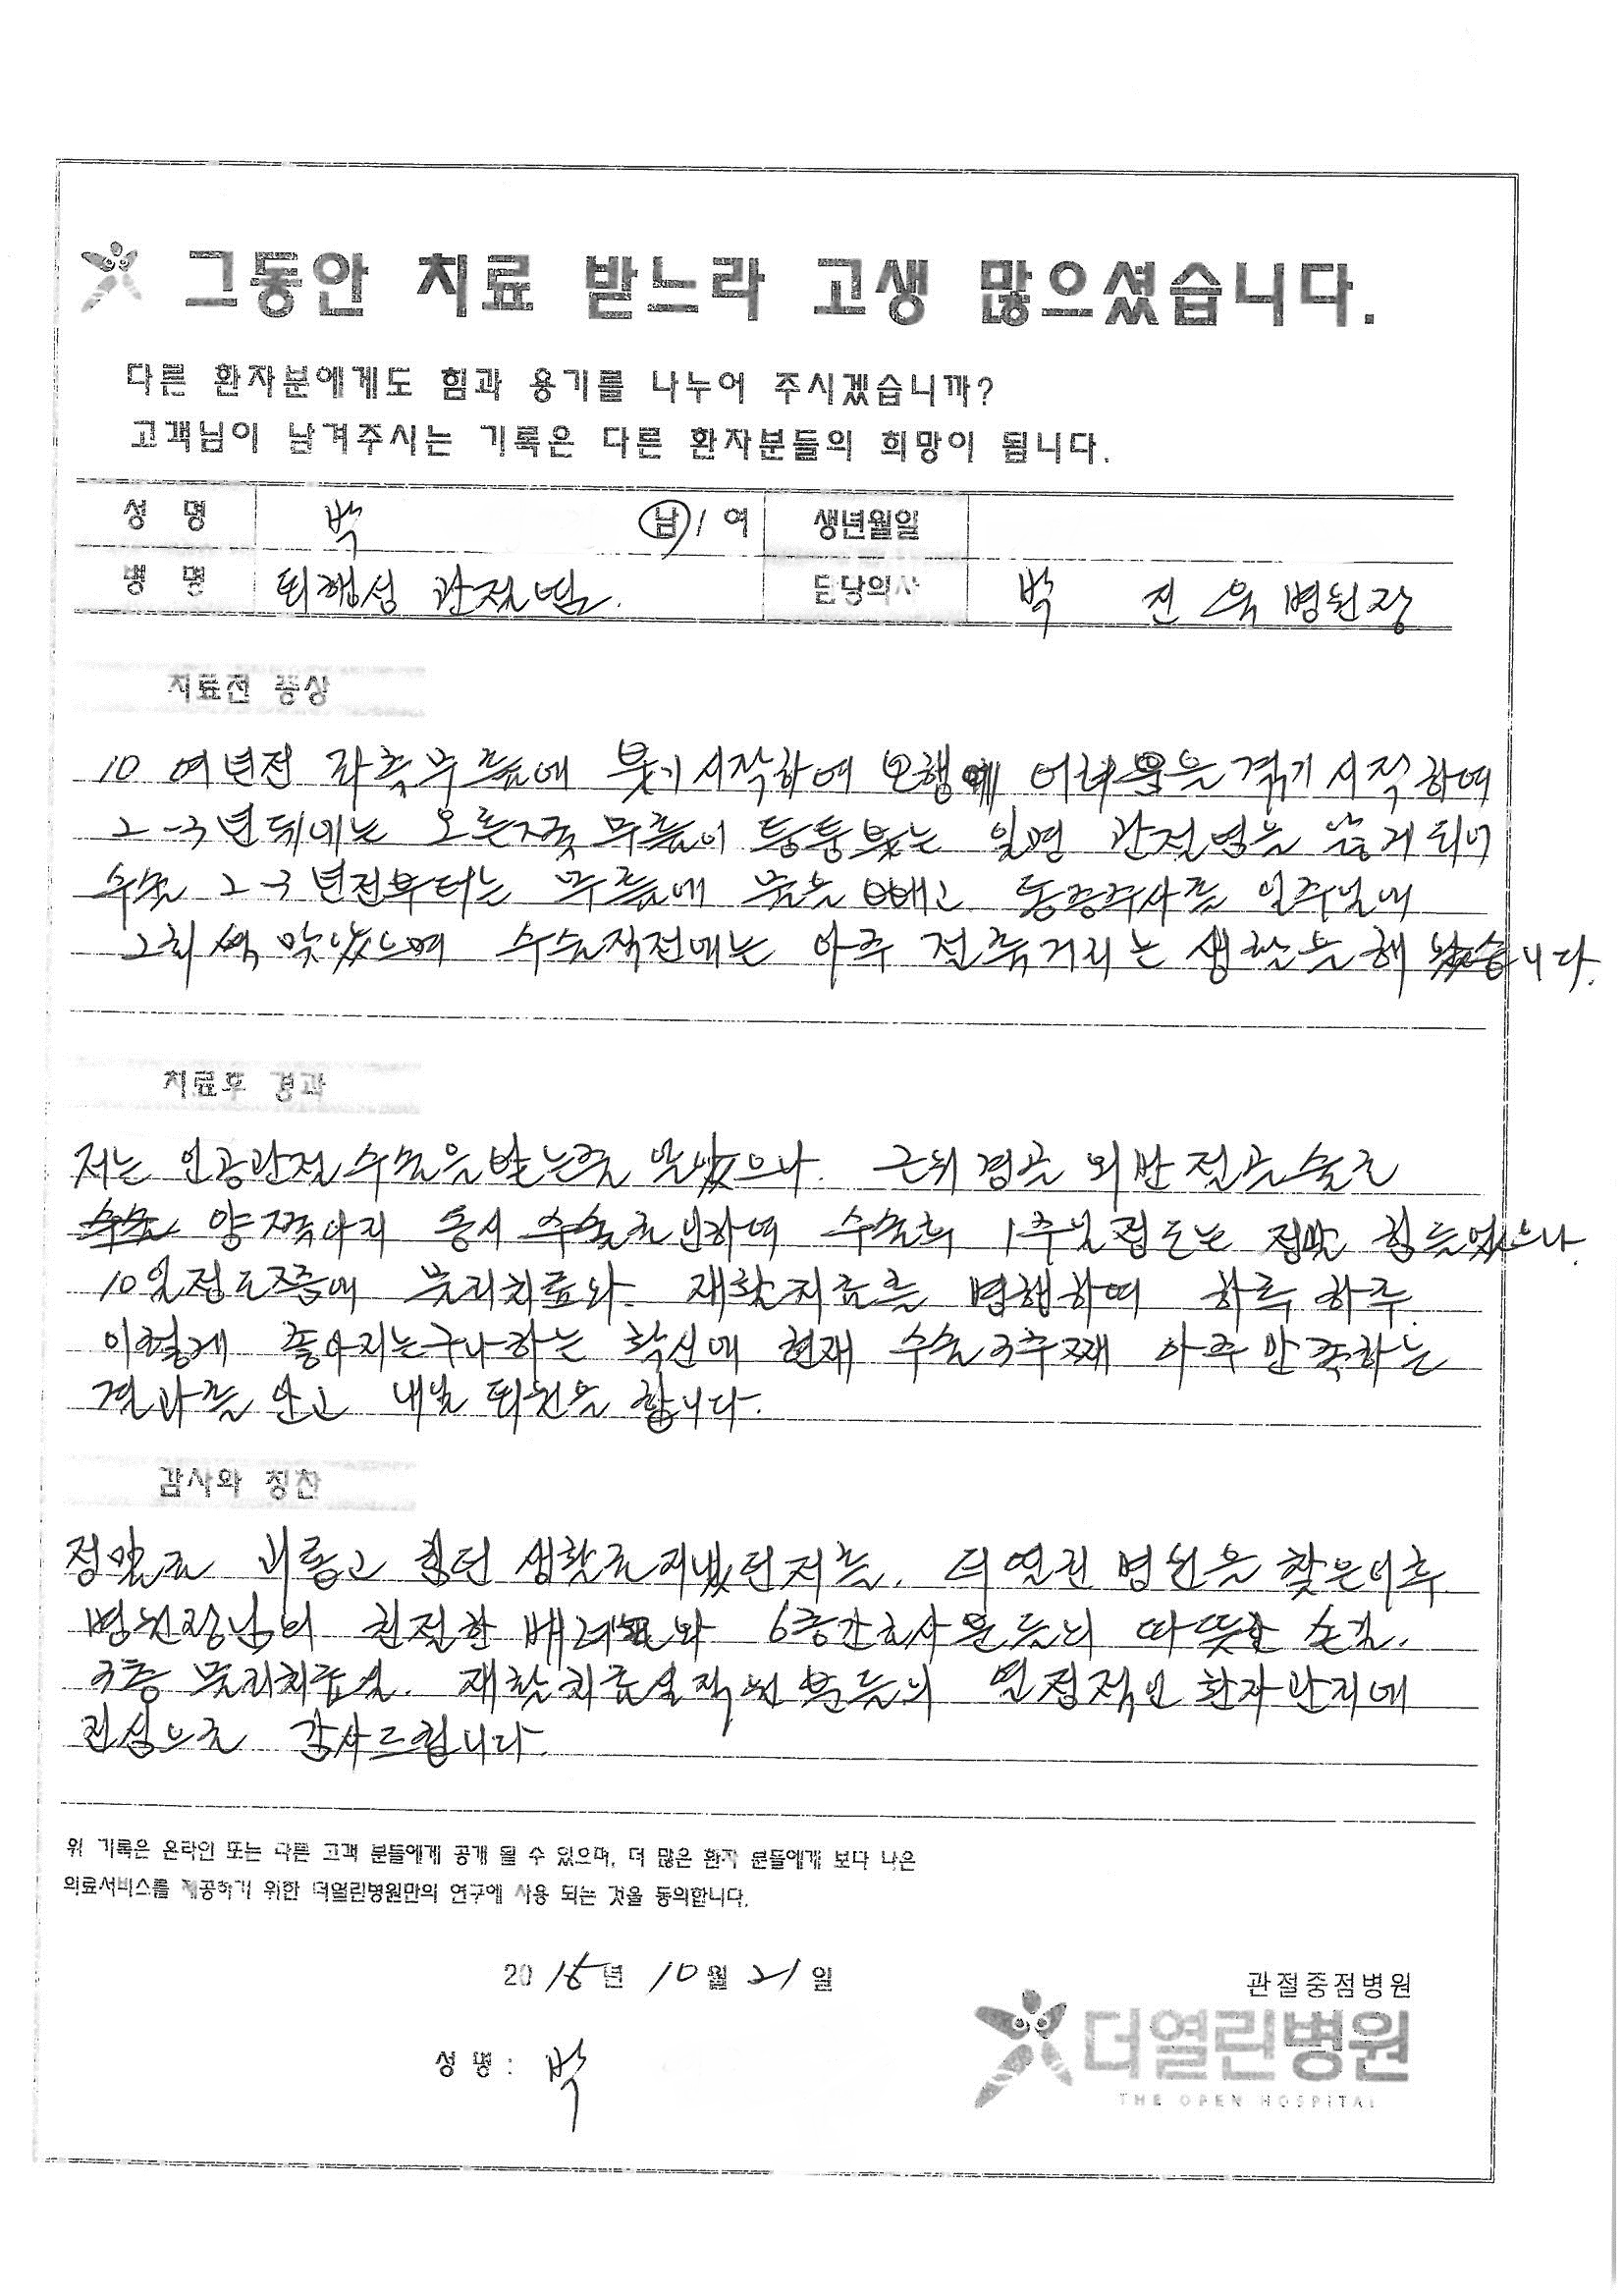 그동안 치료 받느라 고생 많으셨습니다.
다른 환자분에게도 힘과 용기를 나누어 주시겠습니까?
고객님이 남겨주시는 기록은 다른 환자분들의 희망이 됩니다.
성 명 박 남 / 여 생년월일
병 명 퇴행성 관절염. 담당의사 박 진욱 병원장
치료전 증상
10여년전 좌측무릎에 붓기 시작하여 보행에 어려움을 겪기 시작하여
2-3년뒤에는 오른쪽 무릎이 퉁퉁붓는 일명 관절병을 앓게되어
수술 2-3년전부터는 무릎에 물을 빼고 통증주사를 일주일에
2회씩 맞았으며 수술직전에는 아주 절뚝거리는 생활을 해 왔습니다.
치료후 경과
저는 인공관절수술을 받는줄 알았으나. 근위경골 외반 절골술로
수술 양쪽다리 동시 수술로인하여 수술후 1주일정도는 정말 힘들었으나.
10일정도쯤에 물리치료와 재활치료를 병행하며 하루 하루
이렇게 좋아지는구나하는 확신에 현재 수술3주째 아주만족하는
결과를 안고 내일 퇴원을 합니다.
감사와 칭찬
정말로 괴롭고 힘던 생활로지냈던저를. 더열린병원을 찾은이후
병원장님의 친절한 배려와 6층간호사분들의 따뜻한 손길.
3층 물리치료실. 재활치료실직원분들의 열정적인 환자관리에
진심으로 감사드립니다.
위 기록은 온라인 또는 다른 고객 분들에게 공개 될 수 있으며, 더 많은 환자 분들에게 보다 나은
의료서비스를 제공하기 위한 더열린병원만의 연구에 사용 되는 것을 동의합니다.
2015년 10월 21일
관절중점병원
더열린병원
THE OPEN HOSPITAL
성 명 : 박